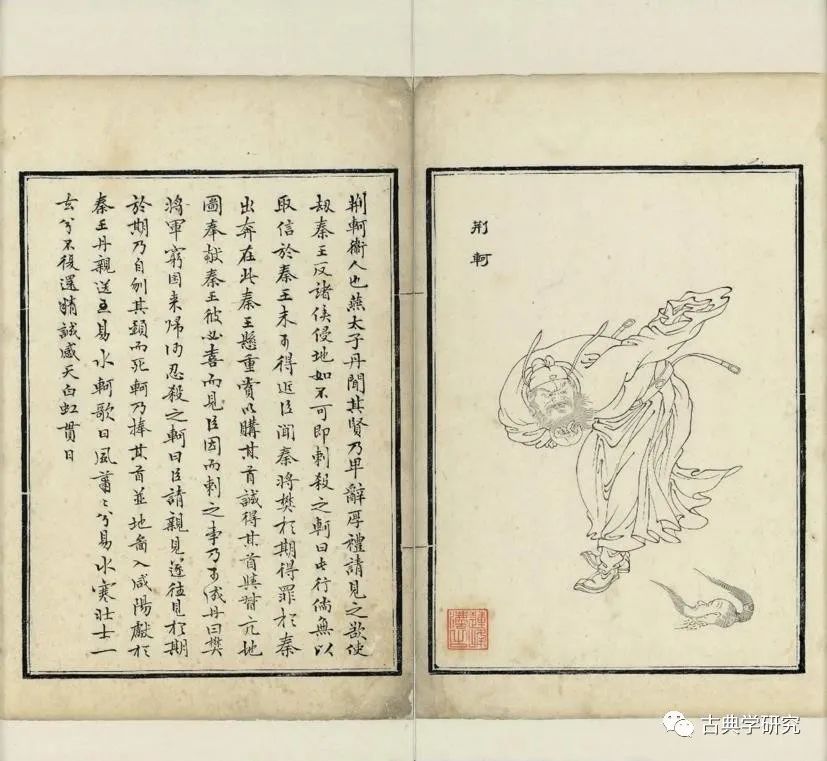 荆軻
荆軻衛人也燕太子丹聞其賢乃卑辭厚禮請見之欲使
刼秦王反諸侯侵地如不可即刺殺之軻曰此行倘無以
取信於秦王未可得近臣聞秦將樊於期得罪於秦
出奔在此秦王懸重賞以購其首誠得其首與督亢地
圖奉献秦王彼必喜而見臣因而刺之事乃可成丹曰樊
將軍窮困来歸何忍殺之軻曰臣請親見遂往見於期
於期乃自刎其頸而死軻乃捧其首並地啚入咸陽獻於
秦王丹親送至易水軻歌曰風蕭〻兮易水寒壯士一
去兮不復還精誠感天白虹貫日
古典学研究